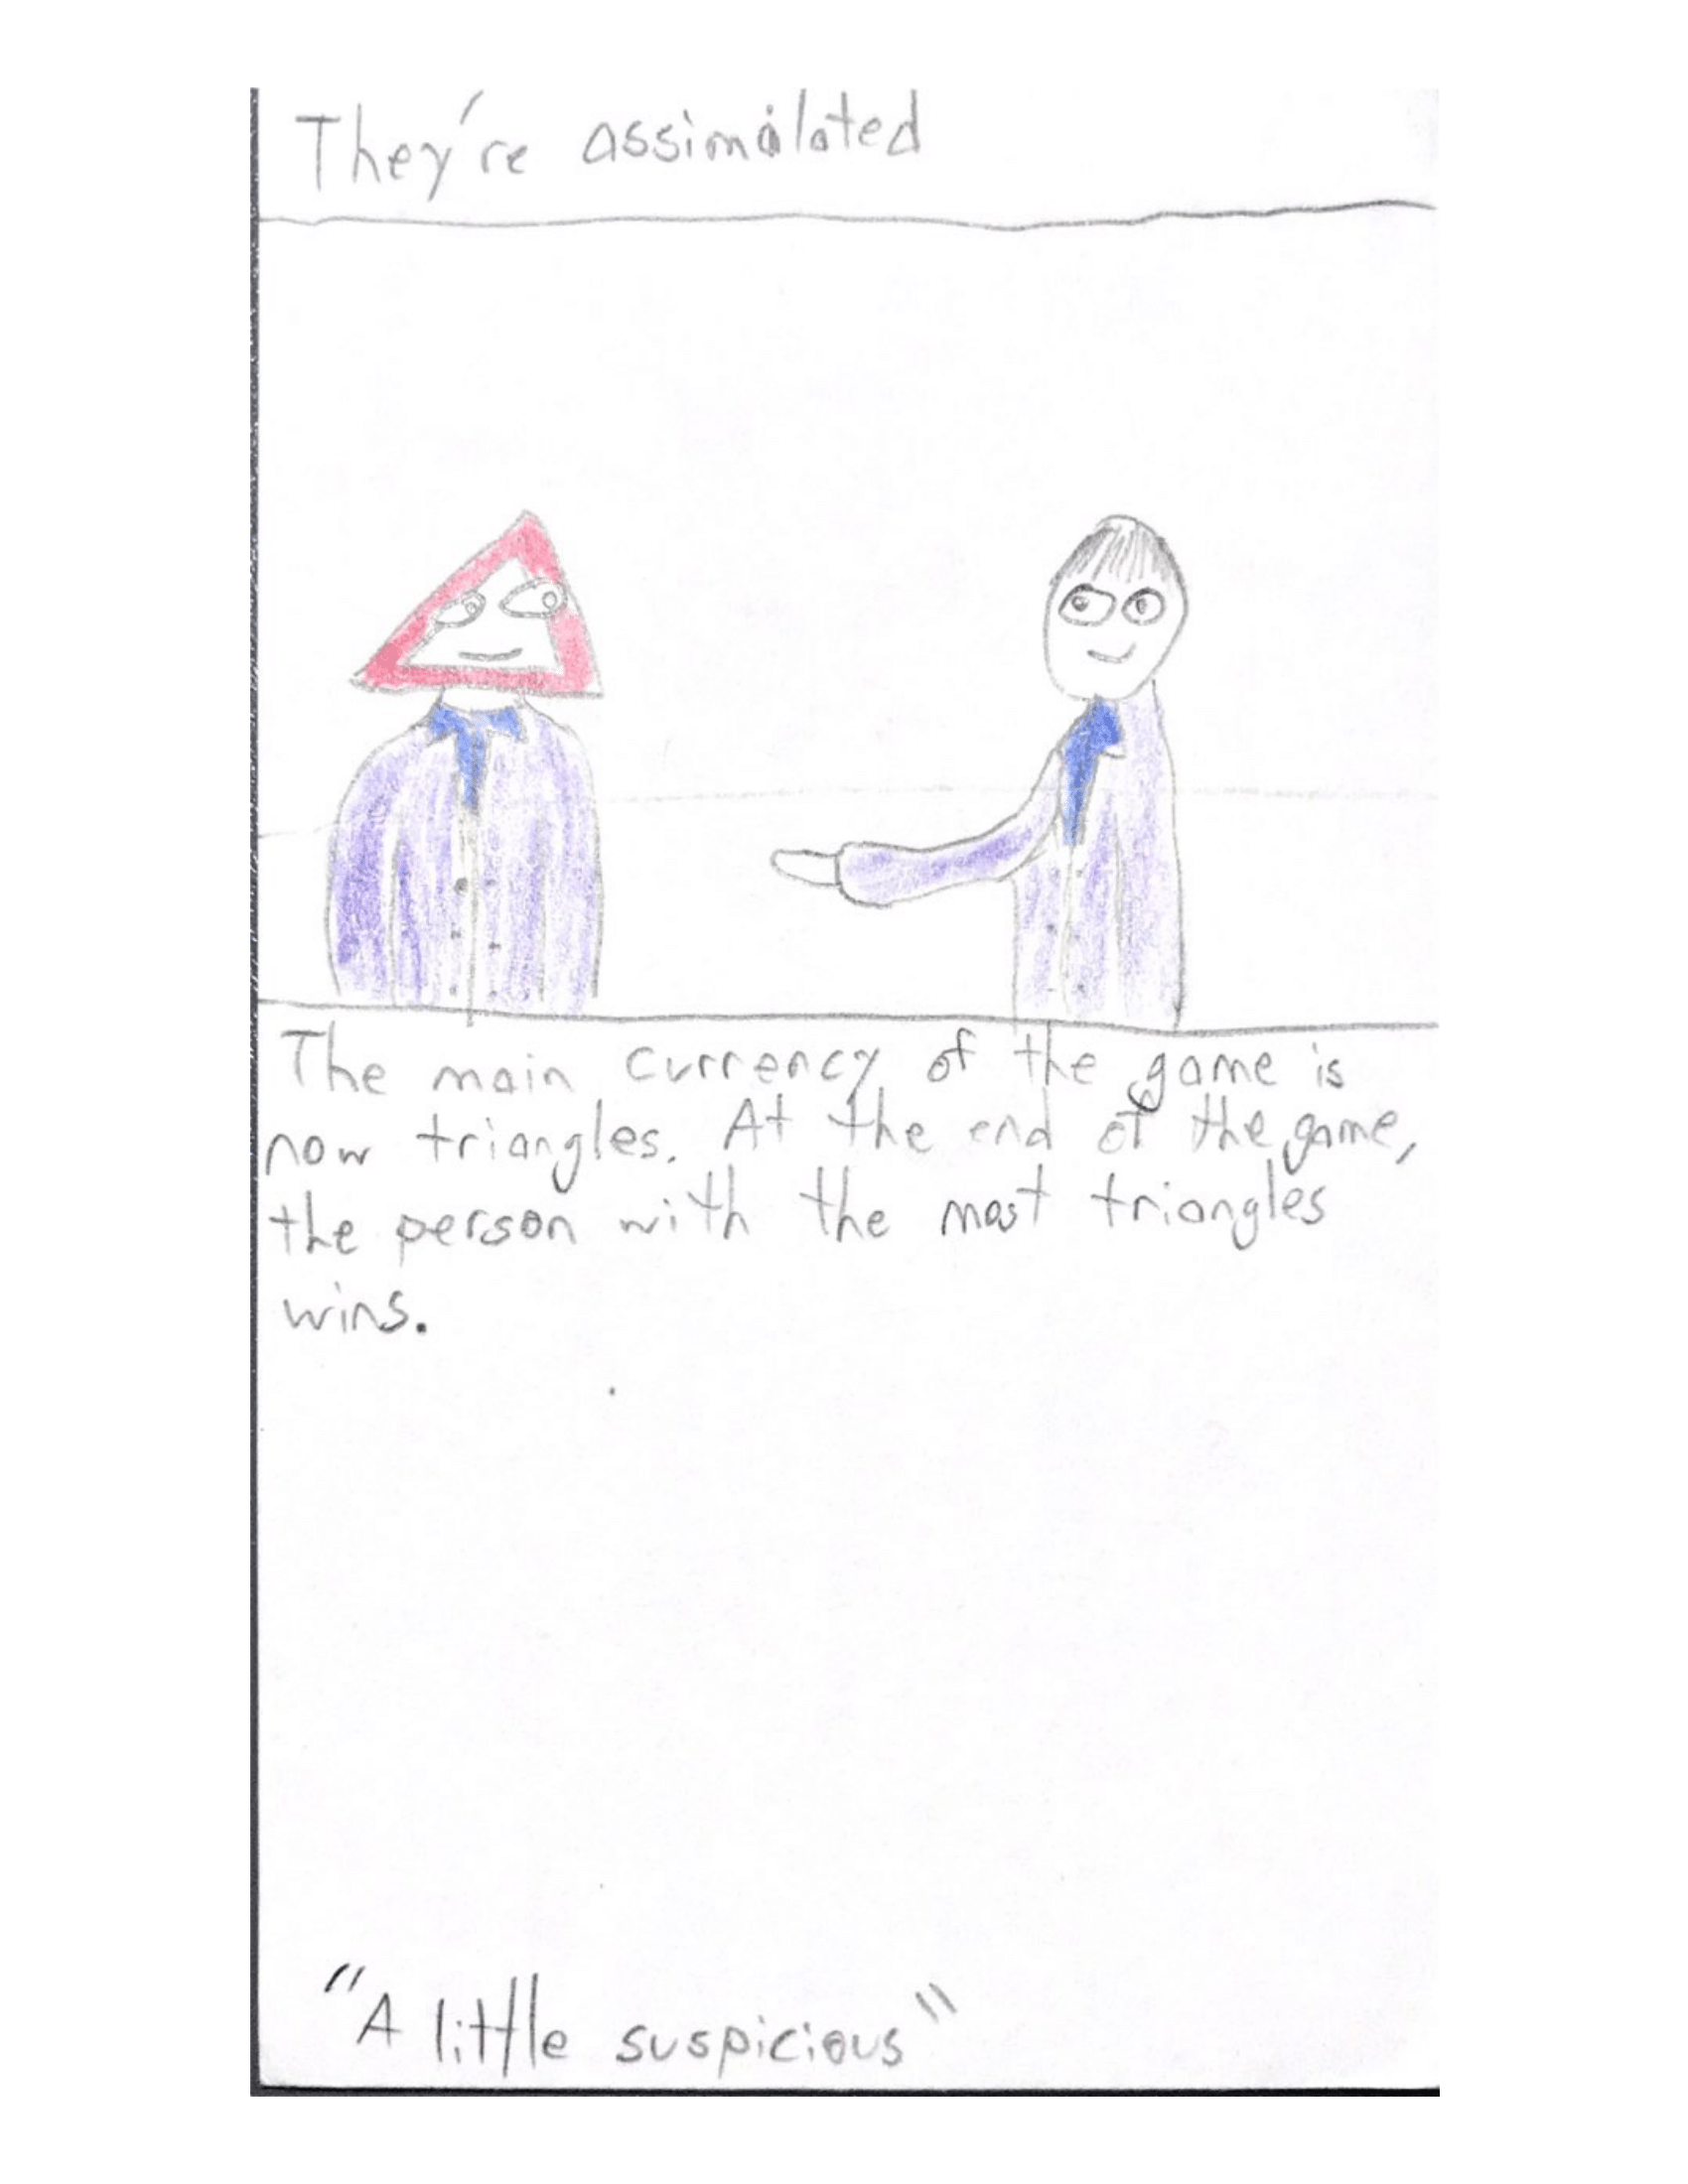 They're assimilated
The main currency of the game is
now triangles. At the end of the game,
the person with the most triangles
wins.
"A little suspicious"